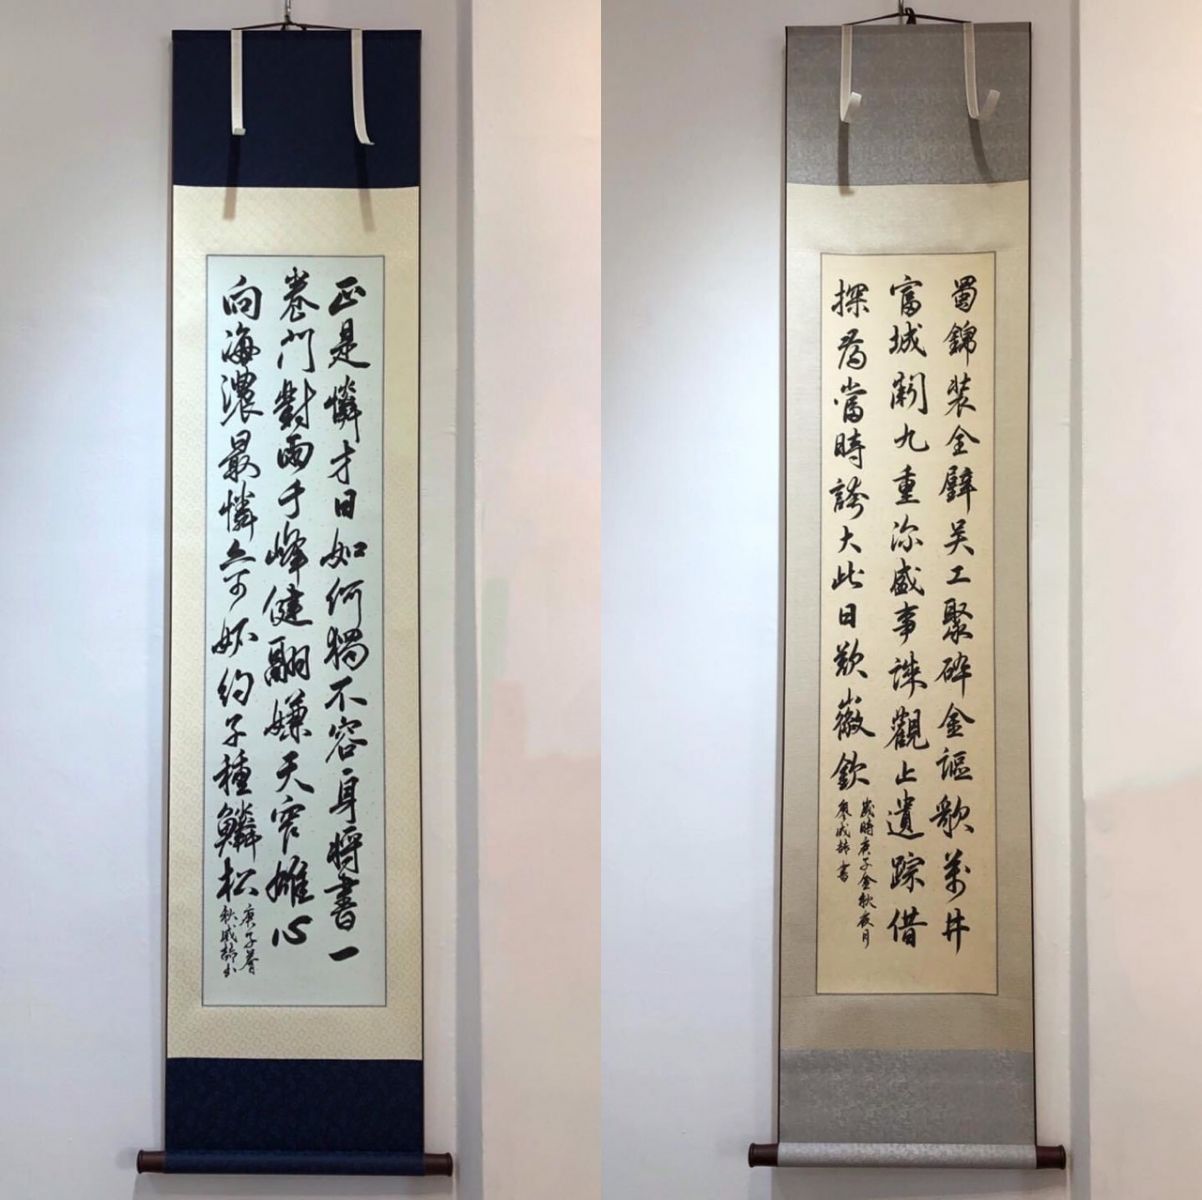 正是憐才日如何獨不容身將書一
卷門對雨千峰健翮嫌天窄雄心
向海濃最憐無可妒約子種鱗松
庚子暮
秋書
蜀錦装全璧吴工聚碎金謳歌萬井
富城闕九重深盛事誠觀止遺踪借
探尋當時誇大此日歎徽欽
歲時庚子金秋夜月
書